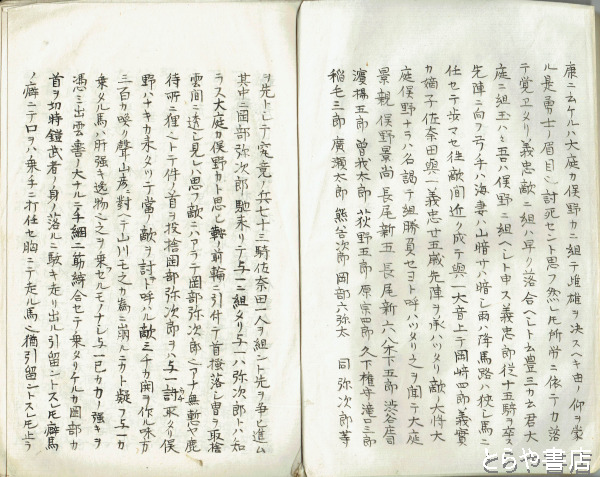 康ニ云ケルハ大庭カ俣野カニ組テ雌雄ヲ决スヘキ由ノ仰ヲ蒙
ル是勇士ノ眉目ニ討死セント思フ然レ𪜈所労ニ依テカ落
テ覚ヱタリ義忠敵ニ組ハ早リ落合ヘシト云豊三カ云君大
庭ニ組玉ハヽ吾ハ俣野ニ組ヘシト申ス義忠郎従十五騎ヲ卒ス
先陣ニ向フ弓手ハ海妻ハ山暗サハ暗シ雨ハ降馬路ハ狭シ馬ニ
任セテ歩マセ往敵間近ク成テ與一大音上テ岡崎四郎義實
カ嫡子佐奈田與一義忠廿五歳先陣ヲ承ハツタリ敵ノ大将大
庭俣野ナラハ名謁テ組勝負セヨト呼ハツタリ之ヲ聞テ大庭
景親 俣野景尚 長尾新五 長尾新六 八木下五郎 渋谷庄司
濱橋五郎 曽我太郎 荻野五郎 原宗四郎 久下権守 滝口三郎
稲毛三郎 廣瀬太郎 熊谷次郎 岡部六弥太 同弥次郎等
ヲ先トシテ究竟ノ兵七十三騎佐奈田一人ヲ組ント先ヲ争ヒ進ム
其中ニ岡部弥次郎馳来リテ与一ニ組タリ与一ハ弥次郎トハ知
ラス大庭カ俣野カト思シ鞍ノ前輪ニ引付テ首掻落シ曽ヲ取捨
雲間ニ透シ見レハ思フ敵ニハアラテ岡部弥次郎之アナ無慙ヤ鹿
待所ノ狸ニトテ件ノ首ヲ投捨岡部弥次郎ヲハ与一討取タリ俣
野ハナキカ未タツテ當ノ敵ヲ討ト呼ハル敵三千カ閧ヲ作ル味方
三百カ喚ク聲山彦ニ對ヘテ山川モ之カ為ニ崩ルニカト疑フ与一カ
乗タル馬ハ肝強キ逸物之之ヲ乗セルモノナシ与一已カカノ強キヲ
憑ミ出雲轡ノ大ナルニ手細二筋縒合セテ乗タリケルカ岡部カ
首ヲ切時鎧武者ノ身ノ落ルニ駭キ走リ出ル引留ントスレ𪜈癖馬
ノ癖ニテ口ヲハ乗手ニ打任セ胸ニテ走ル馬之猶引留ントスレ𪜈止ラ
とらや書店